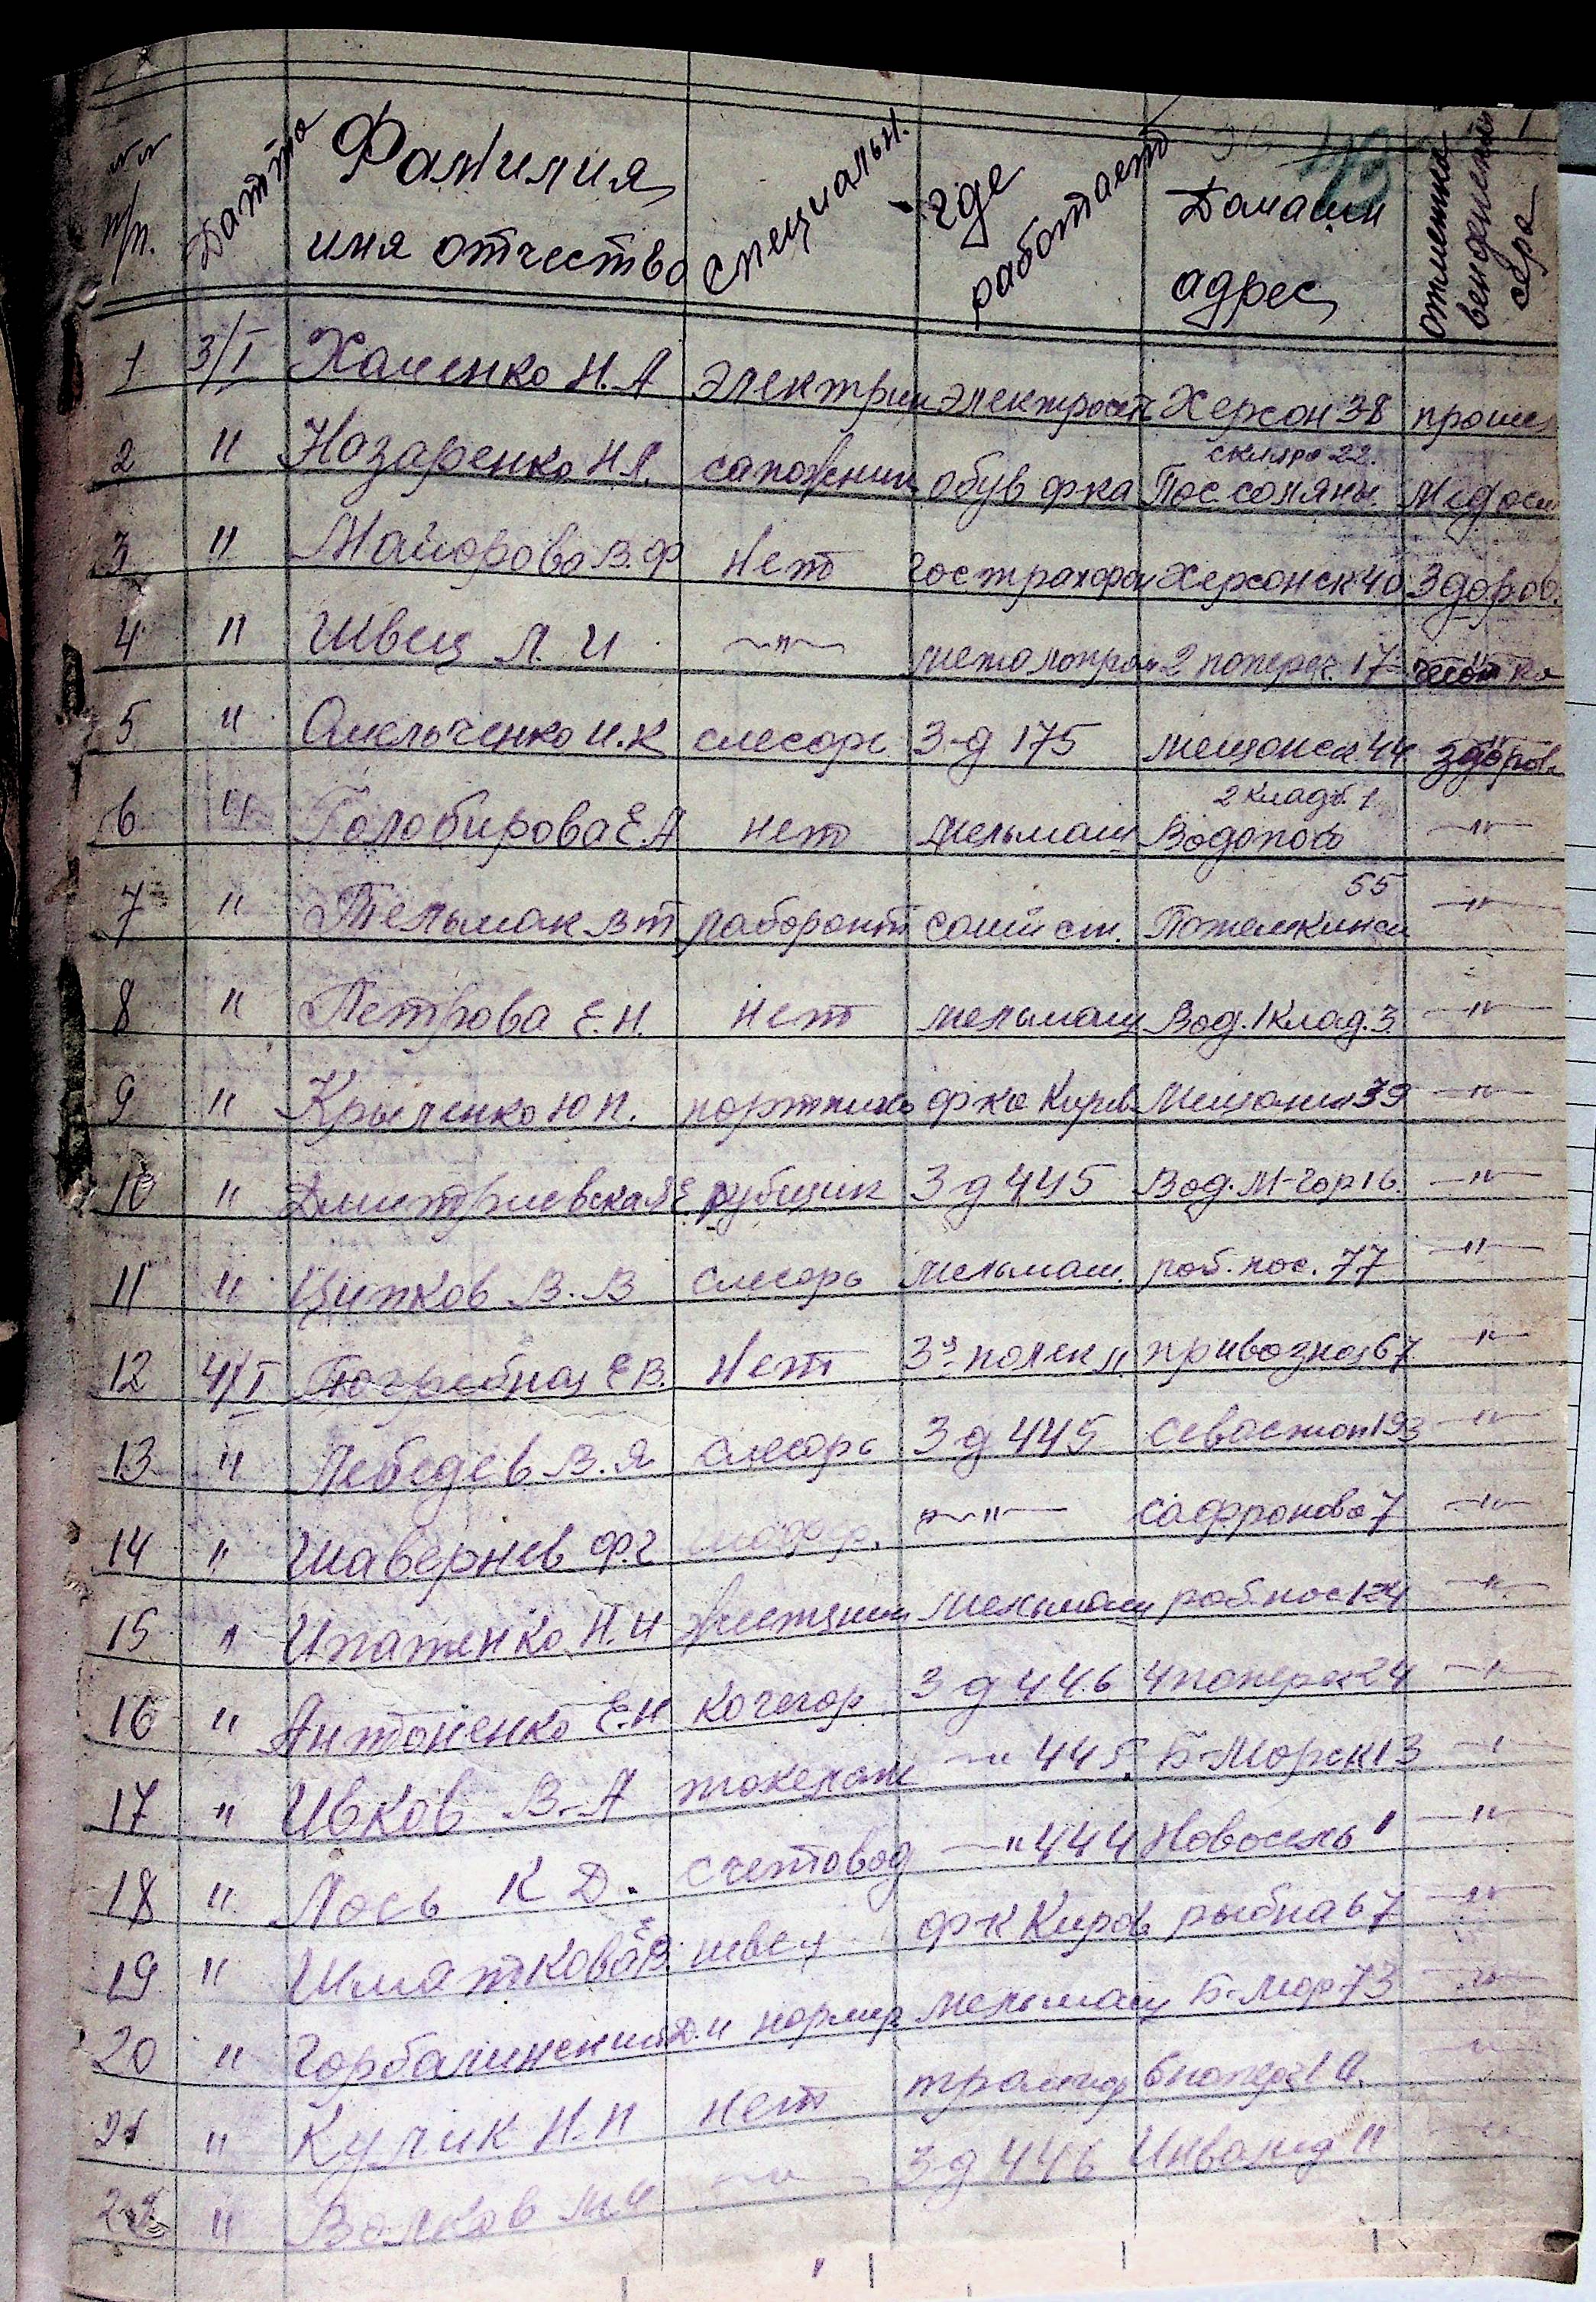 п/п. Датта Фамилия имя отчество специальн. где работает Домашн адрес отметка венеролога
1 3/I Хаменко Н.А электрик электрост Херсон 38
2 " Назаренко Н Я. сапожник обув ф ка Пос соляны
3 " Майорова В.Ф Нет Госстрахов Херсонск 40 Здоров.
4 " Швец Л. И —"— 2 попереч. 17 чесотка
5 " Омельченко И.К слесарь З-д 175 мещанск. 44 здоров
2 кладб. 1
6 " Голобирова Е.А нет мельмаш Водопой —"—
55
7 " Тельмак В Т лаборант Потемкинск —"—
8 " Петрова Е.Н. Нет мельмаш Вод. 1 Клад. 3 —"—
9 " Крыленко Ю П. портниха ф ка Киров Мещанск 39 —"—
10 " Дмитриевская Е. рубщик З д 445 Вод. М-Гор 16. —"—
11 " Ципков В. В слесарь мельмаш. раб. пос. 77 —"—
12 4/I Погребная Е В. Нет 3я полекл. привозная 67 —"—
13 " Лебедев В. Я слесарь З д 445 Севастоп 193 —"—
14 " Шавернев Ф.Г —"— Сафронова 7 —"—
15 " Ипатенко Н. И мельмаш раб. пос 124 —"—
16 " Антоненко Е.Н кочегар З д 446 4 попереч 24 —"—
17 " Ивков В. А такелаж —" 445. Б-Морск 13 —"—
18 " Лось К Д. счетовод —" 444 Новосель " —"—
19 " Шматкова Е В. швея ф-к Киров рыбна 67 —"—
20 " Горбалинский Д.И нормир. мельмаш Б-Мор 73 —"—
21 " Кулик Н. П нет 6 попереч —"—
22 " Волков М И —"— З-д 446 Инвалид 11 —"—